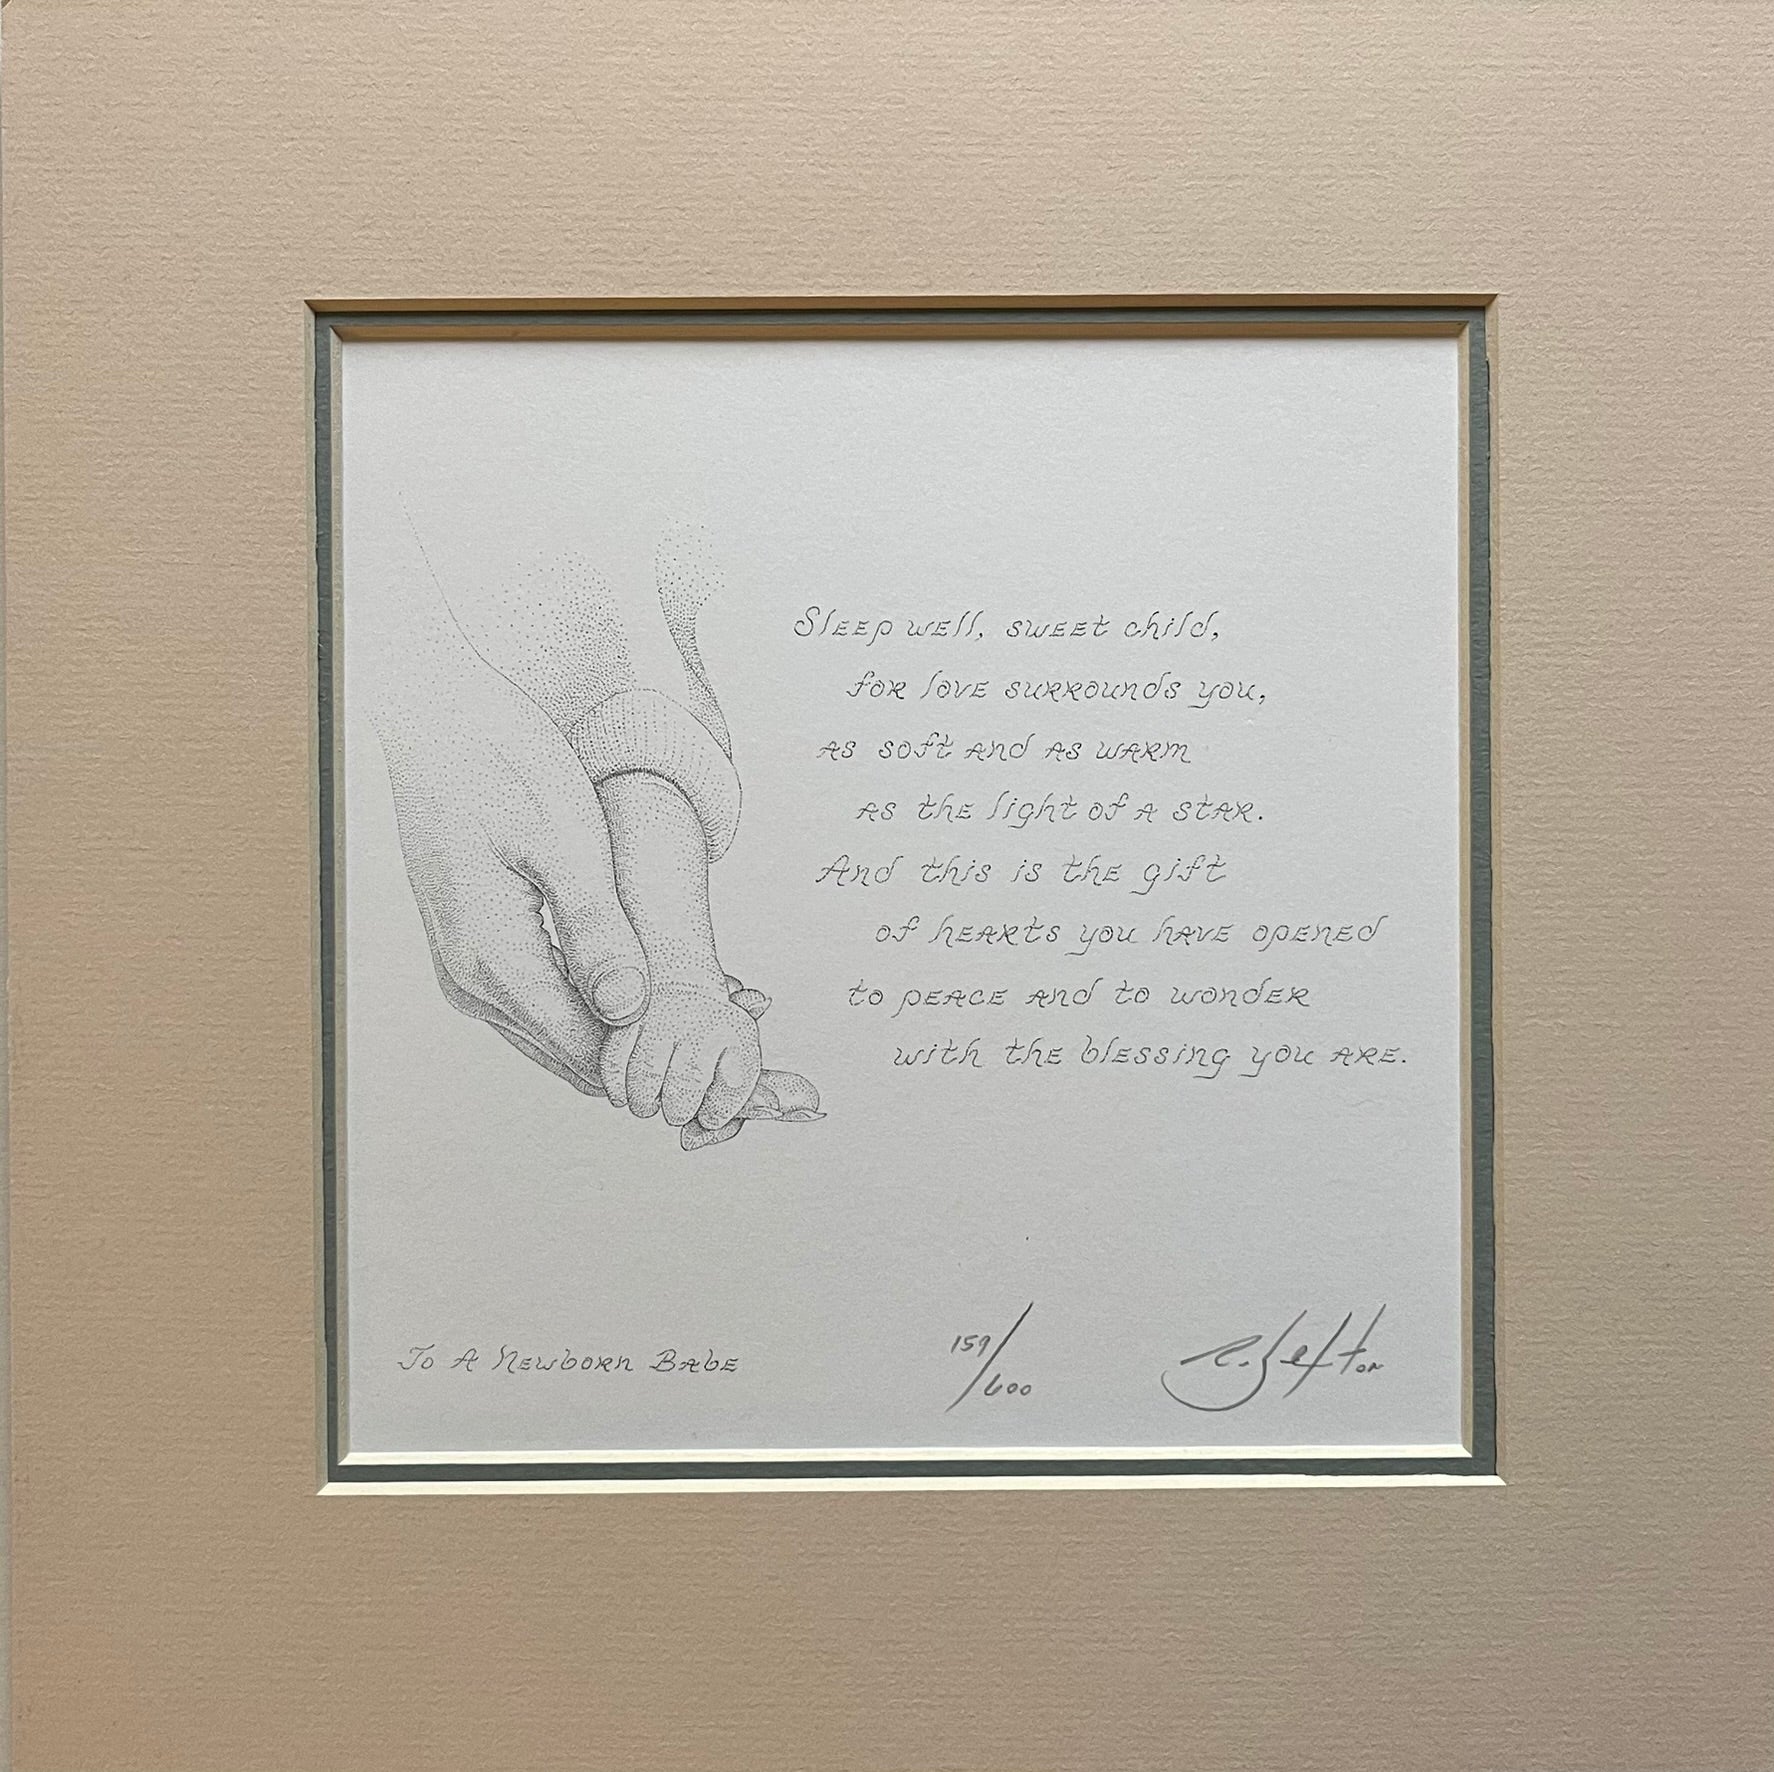 Sleep well, sweet child,
for love surrounds you,
as soft and as warm
as the light of a star.
And this is the gift
of hearts you have opened
to peace and to wonder
with the blessing you are.
To A Newborn Babe
159/600